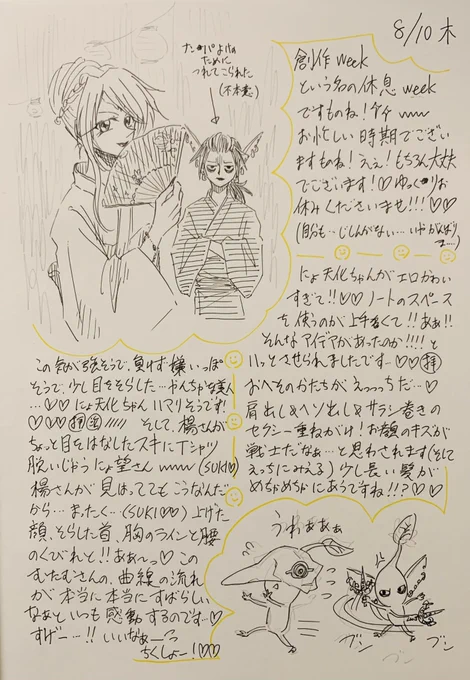 8/10 木
ナンパよけの
ために
つれてこられた
(不本意)
創作week
という名の休息week
ですものね!
お忙しい時期でござい
ますものね!ええ!もちろん大丈夫
でございます!♡ゆっくりお
休みくださいませ!!!♡♡
にょ天化ちゃんがエロかわい
すぎて!!♡♡ノートのスペース
を使うのが上手なくて!!ああ!!
そんなアイデアがあったのか!!!!と
ハッとさせられましたです…♡♡拝
おへそのかたちがえっっっちだ…♡
肩出し&ヘソ出し&サラシ巻きの
セクシー重ねがけ!お顔のキズが
戦士だなぁ…と思わされます(そして
えっちにみえる)少し長い髪が
めちゃめちゃにあうですね!!?♡♡
この気が強そうで、負けず嫌いっぽ
そうで、少し目をそらした…やんちゃ美人
…♡♡にょ天化ちゃんハマりそうです!
♡♡♡ そして、楊さんが
ちょっと目をはなしたスキにTシャツ
脱いじゃうにょ望さん (SUKI♡)
楊さんが見はっててもこうなんだ
から…まったく…(SUKI♡♡)上げた
顔、そらした首、胸のラインと腰
のくびれと!!ああ〜っ♡この
むたむさんの、曲線の流れ
が本当に本当にすばらしい
なぁと、いつも感動するのです…♡
すげー…!!いいなぁーっ
ちくしょー!♡♡
うわぁぁぁ
ブン
ブン
ブン